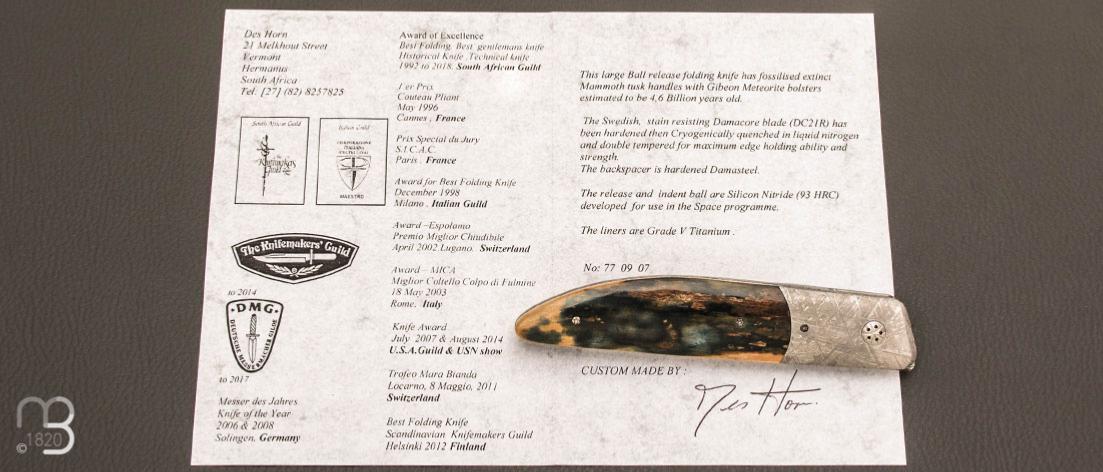 Des Horn
21 Melkhout Street
Vermont
Hermanus
South Africa
Tel. [27] (82) 8257825
South African Guild
Knifemakers
Guild
Italian Guild
CORPORAZIONE
ITALIANA
COLTELLINAI
MAESTRO
The Knifemakers' Guild
to 2014
DMG
DEUTSCHE MESSERMACHER GILDE
to 2017
Messer des Jahres
Knife of the Year
2006 & 2008
Solingen. Germany
Award of Excellence
Best Folding. Best gentlemans knife
Historical Knife .Technical knife
1992 to 2018. South African Guild
1'er Prix
Couteau Pliant
May 1996
Cannes , France
Prix Special du Jury
S.I.C.A.C.
Paris . France
Award for Best Folding Knife
December 1998
Milano . Italian Guild
Award –Espolama
Premio Miglior Chiudibile
April 2002.Lugano. Switzerland
Award – MICA
Miglior Coltello Colpo di Fulmine
18 May 2003
Rome. Italy
Knife Award
July 2007 & August 2014
U.S.A.Guild & USN show
Trofeo Mara Bianda
Locarno, 8 Maggio, 2011
Switzerland
Best Folding Knife
Scandinavian Knifemakers Guild
Helsinki 2012 Finland
This large Ball release folding knife has fossilised extinct
Mammoth tusk handles with Gibeon Meteorite bolsters
estimated to be 4,6 Billion years old.
The Swedish, stain resisting Damacore blade (DC21R) has
been hardened then Cryogenically quenched in liquid nitrogen
and double tempered for maximum edge holding ability and
strength.
The backspacer is hardened Damasteel.
The release and indent ball are Silicon Nitride (93 HRC)
developed for use in the Space programme.
The liners are Grade V Titanium .
No: 77 09 07
CUSTOM MADE BY :
Des Horn.
© 1820